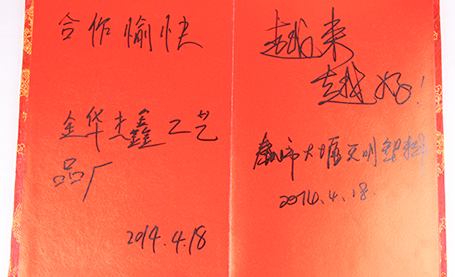 合作愉快
金华杰鑫工艺
品厂
2014.4.18
越来
越好!
2014.4.18.